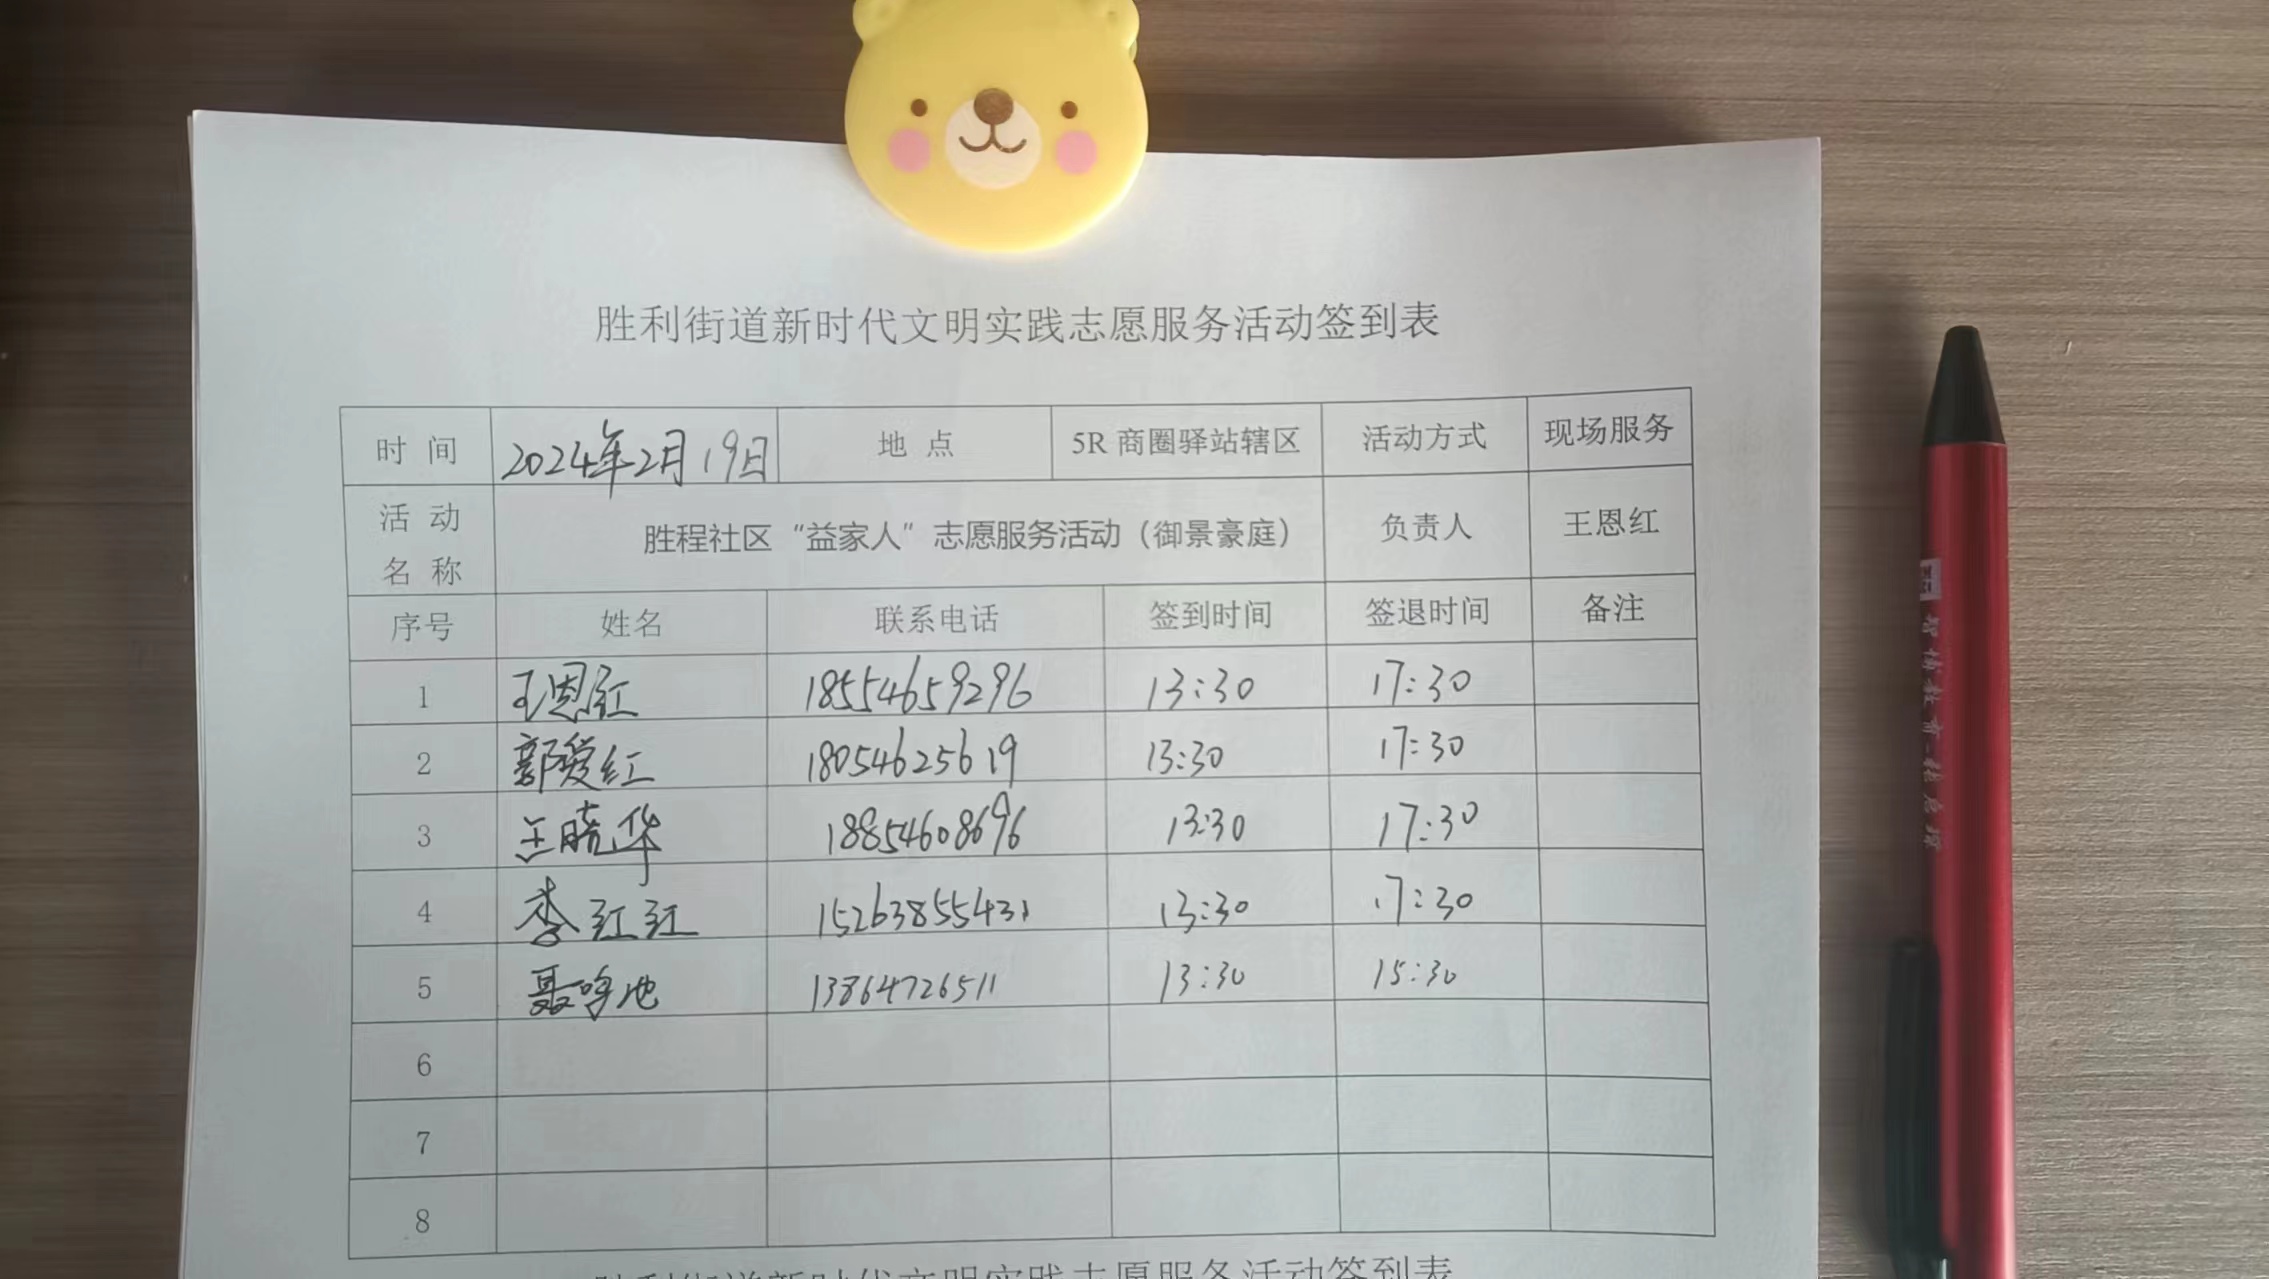 胜利街道新时代文明实践志愿服务活动签到表
时 间 2024年2月19日 地 点 5R 商圈驿站辖区 活动方式 现场服务
活 动 名 称 胜程社区“益家人”志愿服务活动（御景豪庭） 负责人 王恩红
序号 姓名 联系电话 签到时间 签退时间 备注
1 王恩红 18554659296 13:30 17:30
2 郭爱红 18054625619 13:30 17:30
3 王晓华 18854608696 13:30 17:30
4 李红红 15263855431 13:30 17:30
5 聂 13864726511 13:30 15:30
6
7
8
胜利街道新时代文明实践志愿服务活动签到表